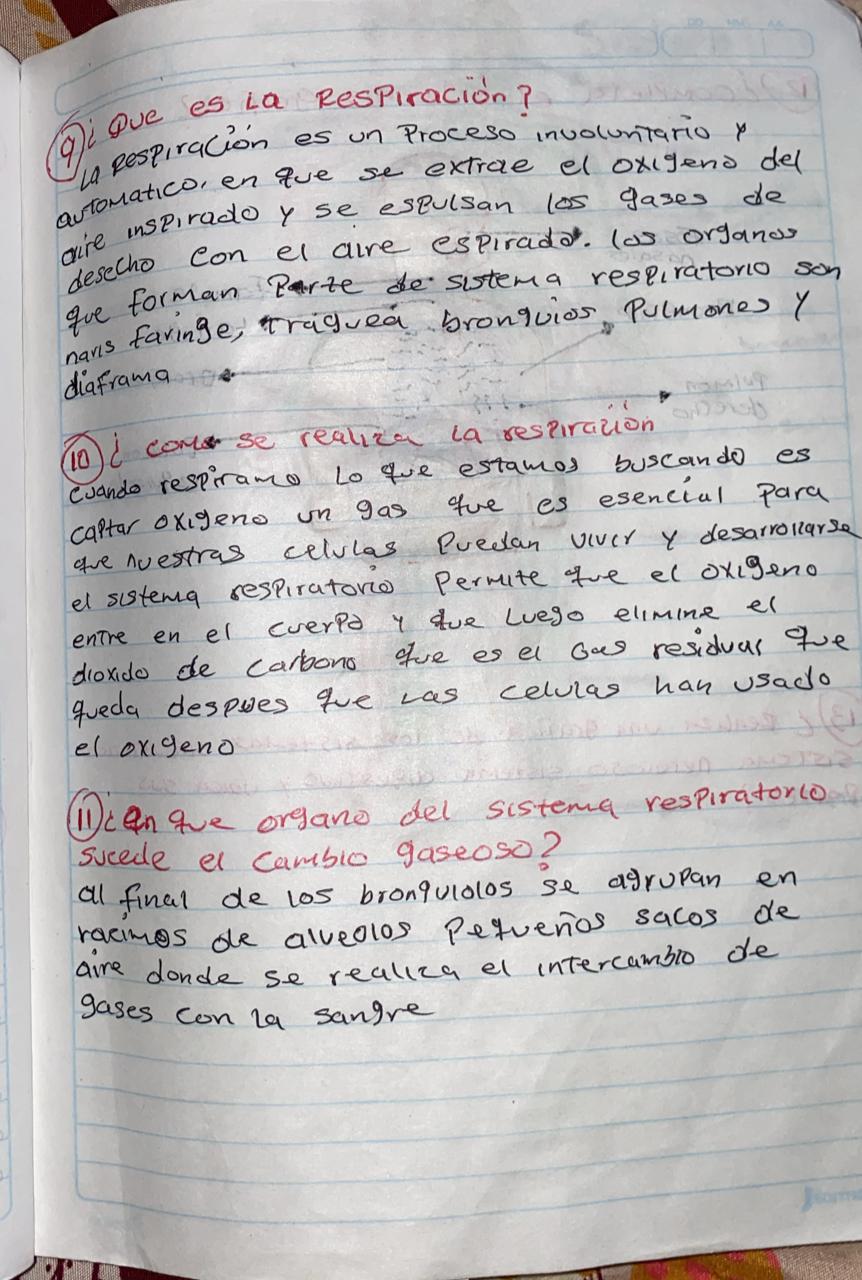 9) ¿Que es La Respiración?
La Respiración es un Proceso involuntario y
automatico, en que se extrae el oxigeno del
aire inspirado y se espulsan los gases de
desecho con el aire espirado. los organos
que forman Parte de sistema respiratorio son
naris faringe, traquea bronquios, Pulmones y
diaframa
10) ¿ como se realiza la respiración
cuando respiramo Lo que estamos buscando es
captar oxigeno un gas que es esencial para
que nuestras celulas Puedan vivir y desarrollarse
el sistema respiratorio Permite que el oxigeno
entre en el cuerpo y que Luego elimine el
dioxido de carbono que es el Gas residual que
queda despues que Las celulas han usado
el oxigeno
11) ¿en que organo del sistema respiratorio
sucede el cambio gaseoso?
al final de los bronquiolos se agrupan en
racimos de alveolos Pequeños sacos de
aire donde se realiza el intercambio de
gases con la sangre